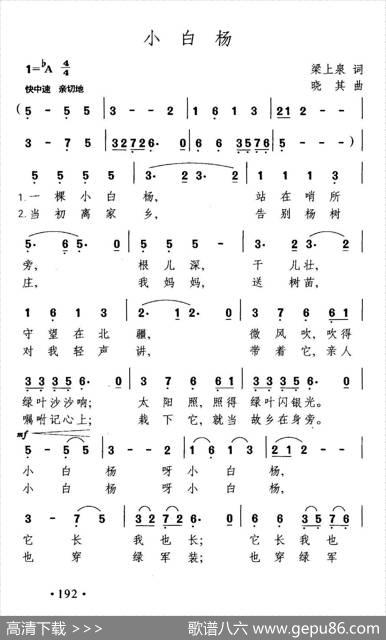 小白杨
1=♭A 4/4
梁上泉 词
快中速 亲切地
晓其 曲
(5 - 5 5 | 3 - - 2 | 1 6 1 3 | 2 1 2 - - |
3 - 7 5 | 3 2 3 2 7 2 6· 0 | 3 6 6 1 3 5 7 6 | 5 - - - )
5 5 5 5 | 3· 2 3· 0 | 5 5 5 2
1.一棵小白杨, 站在哨所
2.当初离家乡, 告别杨树
5· 6 5· 0 | 5 5 5 - | 3· 3 3 2
旁, 根儿深, 干儿壮,
庄, 我妈妈, 送树苗,
1 6 1 3 | 2 - - 0 | 3 7 6 6 1
守望在北疆, 微风吹,吹得
对我轻声讲, 带着它,亲人
3 3 3 5 6· 0 | 3 7 6 6 1 | 3 3 3 5 6 5· 0
绿叶沙沙响; 太阳照,照得 绿叶闪银光。
嘱咐记心上; 栽下它,就当 故乡在身旁。
mf
5 - 5 5 | 3 - - 2 | 1 6 1 3 | 2 1 2 - -
小白杨呀小白杨,
小白杨呀小白杨,
3 - 7 5 | 3 2 7 2 6· 0 | 6 6 3 5 7 6
它长我也长; 它长我也
也穿绿军装; 也穿绿军
· 192 ·
高清下载 >>>
歌谱八六 www.gepu86.com